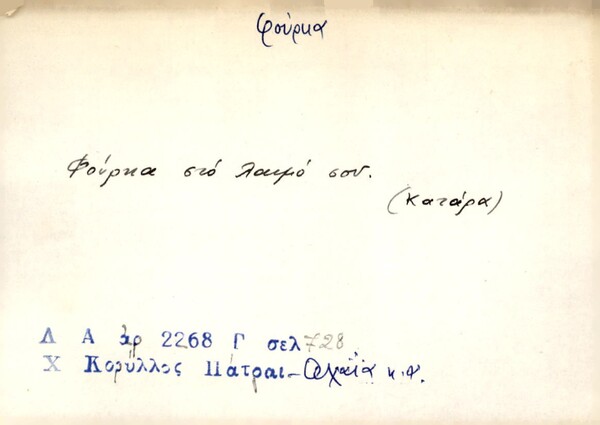 φούρκα
Φούρκα στό λαιμό σου.
(κατάρα)
Λ Α ἀρ 2268 Γ σελ 728
Χ Κορύλλος Πάτραι - Ἀχαΐα κ.ἀ.